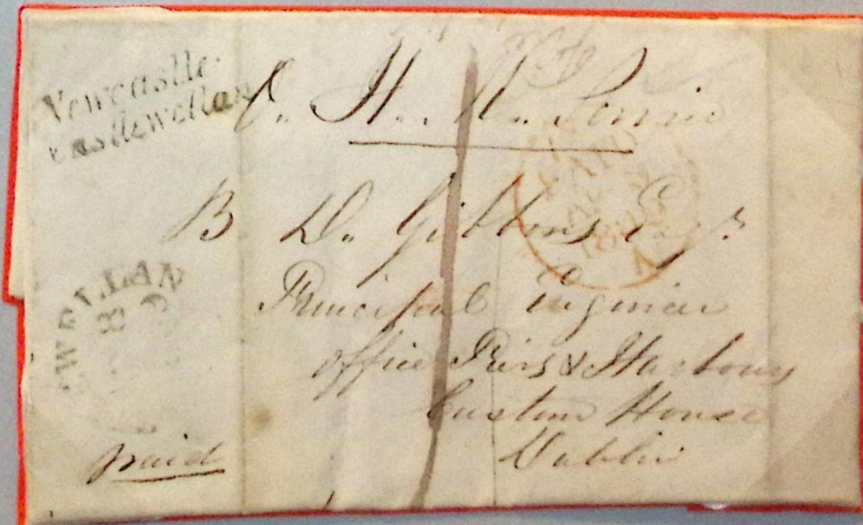 Newcastle
Castlewellan
O. H. M. Service
PAID
B D. Gibbons Esqr.
Principal Engineer
office Piers & Harbours
Custom House
Dublin
WELLAN
paid